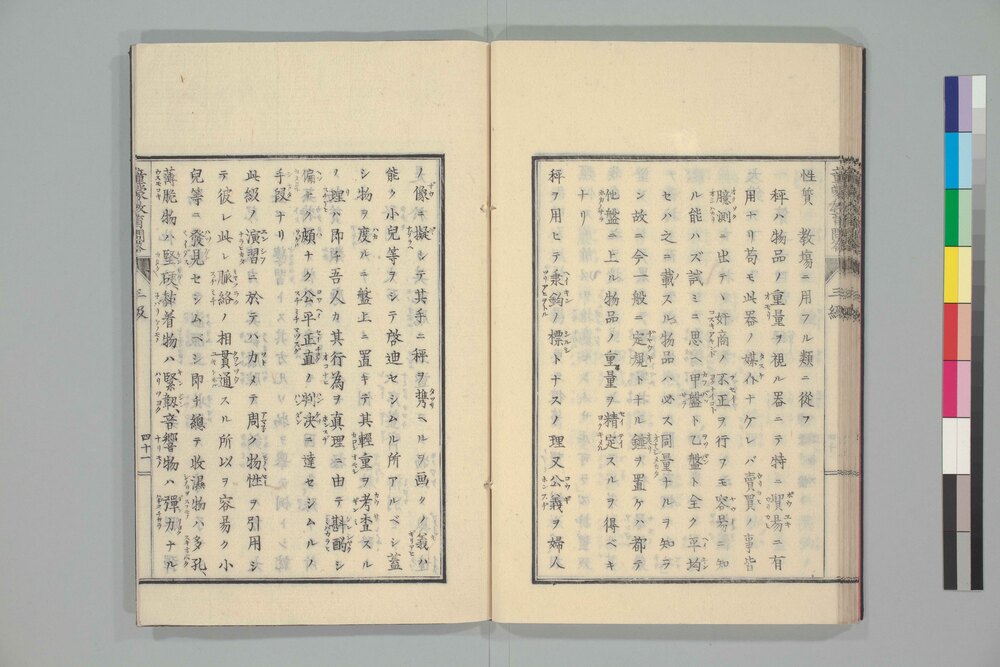 性質　教塲ニ用フル類ニ從フ
秤ハ物品ノ重量ヲ視ル器ニテ特ニ貿易ニ有
用ナリ苟モ此器ノ媒介ナケレバ賣買ノ事皆
臆測ニ出テヽ奸商ノ不正ヲ行フモ容易ニ知
ル能ハズ試ミニ思ヘ甲盤ト乙盤ト全ク平均
セハ之ニ載スル物品ハ必ス同量ナルヲ知ラ
ン故ニ今一般ニ定規トナル錘ヲ置ケハ都テ
他盤ニ上ル物品ノ重量ヲ精定スルヲ得ベキ
ナリ
秤ヲ用ヒテ衡鈞ノ標トナスノ理又公義ヲ婦人
ノ像ニ擬シテ其手ニ秤ヲ携ヘルヲ画ク義ハ
能ク小兒等ヲシテ啓迪セシムル所アルベシ蓋
シ物ヲ度ルニ盤上ニ置キテ其輕重ヲ考査スル
ノ理ハ即チ吾人カ其行為ヲ真理ニ由テ斟酌シ
偏頗ナク公平正直ノ判決ニ達セシムルノ
手段ナリ
此級ノ演習ニ於テハカメテ周ク物性ヲ引用シ
テ彼レ此レ脈絡ノ相貫通スル所以ヲ容易ク小
兒等ニ發見セシムベシ即チ總テ收濕物ハ多孔、
薄脆物ハ堅硬、粘着物ハ緊靱、音響物ハ彈力ナル
童蒙教育問答
三級
四十一